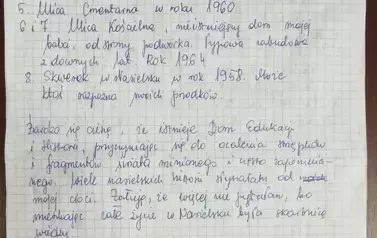 5. Ulica Cmentarna w roku 1960
6 i 7. Ulica Kościelna, nieistniejący dom mojej
babci, od strony podwórka. Typowa zabudowa
z dawnych lat. Rok 1964
8. Skwerek w Nasielsku w rok 1958. Może
ktoś rozpozna swoich przodków.
Bardzo się cieszę, że istnieje Dom Edukacji
i Historii, przyczyniając się do ocalenia strzępków
i fragmentów świata minionego i nieco zapomnia-
nego. Wiele nasielskich historii słyszałam od
mojej cioci. Żałuję, że więcej nie pytałam, bo
mieszkając całe życie w Nasielsku była skarbnicą
wiedzy.